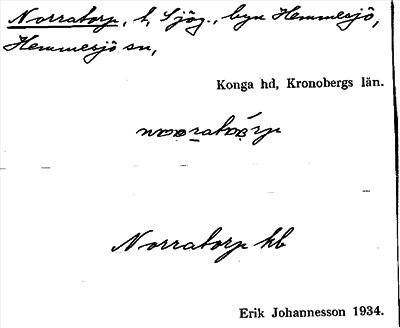 Norratorp, t, Sjög., byn Hemmesjö,
Hemmesjö sn,
Konga hd, Kronobergs län.
Norratorp hb
Erik Johannesson 1934.